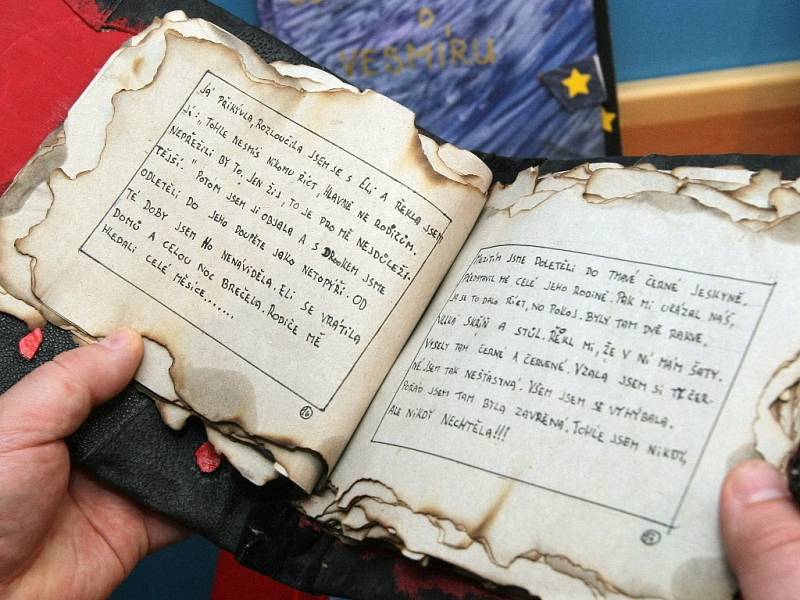 O
VESMÍRU
JÁ PŘIKÝVLA, ROZLOUČILA JSEM SE S ELI A ŘEKLA JSEM
JÍ: „TOHLE NESMÍŠ NIKOMU ŘÍCT, HLAVNĚ NE RODIČŮM.
NEPŘEŽILI BY TO. JEN ŽIJ, TO JE PRO MĚ NEJDŮLEŽI-
TĚJŠÍ." POTOM JSEM JI OBJALA A S DROOKEM JSME
ODLETĚLI DO JEHO DOUPĚTE JAKO NETOPÝŘI. OD
TÉ DOBY JSEM HO NENÁVIDĚLA. ELI SE VRÁTILA
DOMŮ A CELOU NOC BREČELA. RODIČE MĚ
HLEDALI CELÉ MĚSÍCE.......
16
MEZITÍM JSME DOLETĚLI DO TMAVÉ ČERNÉ JESKYNĚ.
PŘEDSTAVIL MĚ CELÉ JEHO RODINĚ. PAK MI UKÁZAL NÁŠ,
JE SE TO DALO ŘÍCT, NO POKOJ. BYLY TAM DVĚ RAKVE,
VELKÁ SKŘÍŇ A STŮL. ŘEKL MI, ŽE V NÍ MÁM ŠATY.
VISELY TAM ČERNÉ A ČERVENÉ. VZALA JSEM SI TY ČER-
NÉ. JSEM TAK NEŠŤASTNÁ. VŠEM JSEM SE VYHÝBALA.
POŘÁD JSEM TAM BYLA ZAVŘENÁ. TOHLE JSEM NIKDY,
ALE NIKDY NECHTĚLA!!!